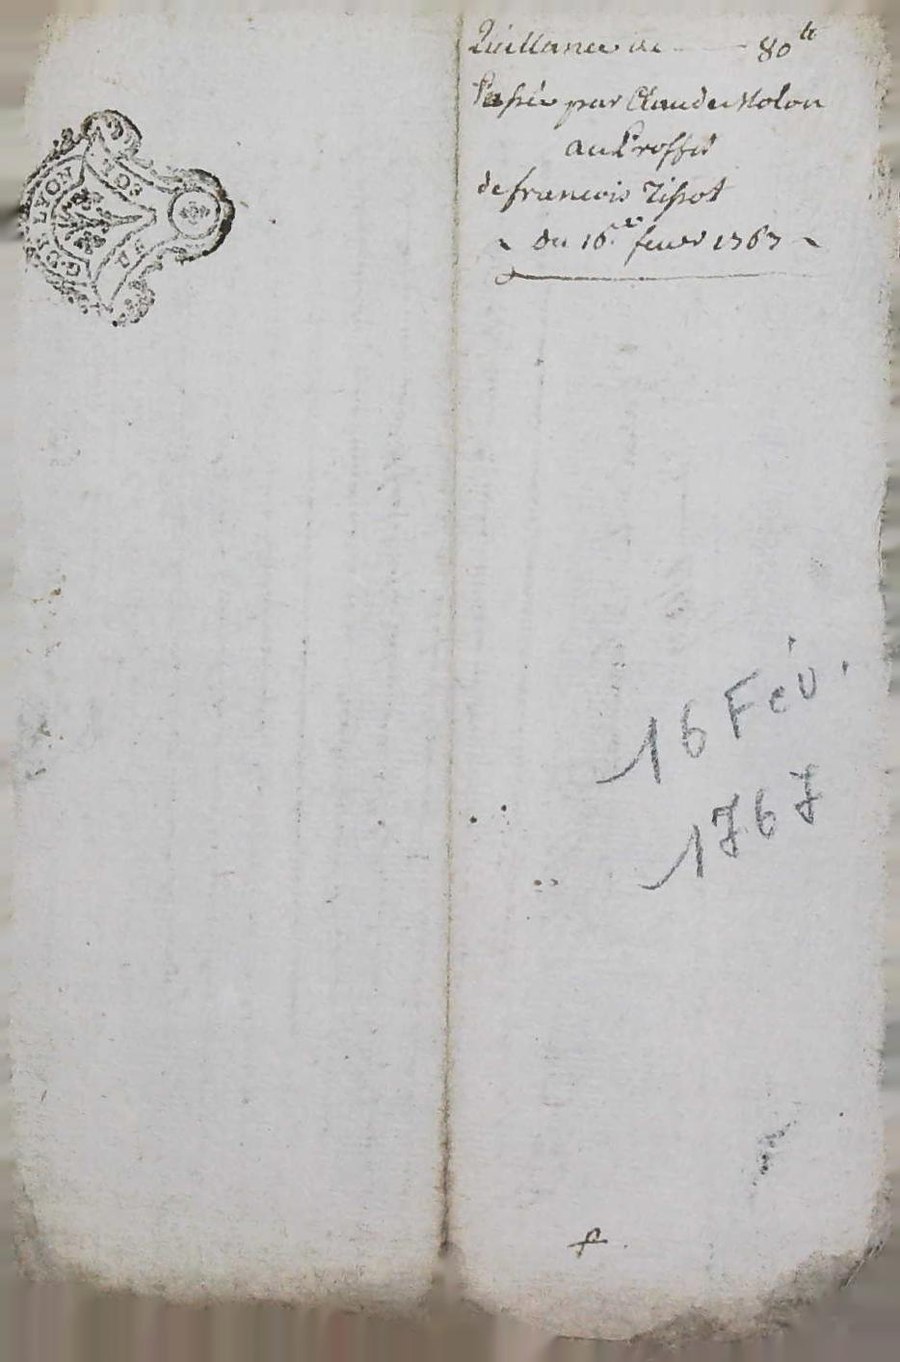 Quittance de — 80 lt
Passée par Claude Molon
au Proffit
de francois Tissot
du 16e fevr 1767
16 Fév.
1767